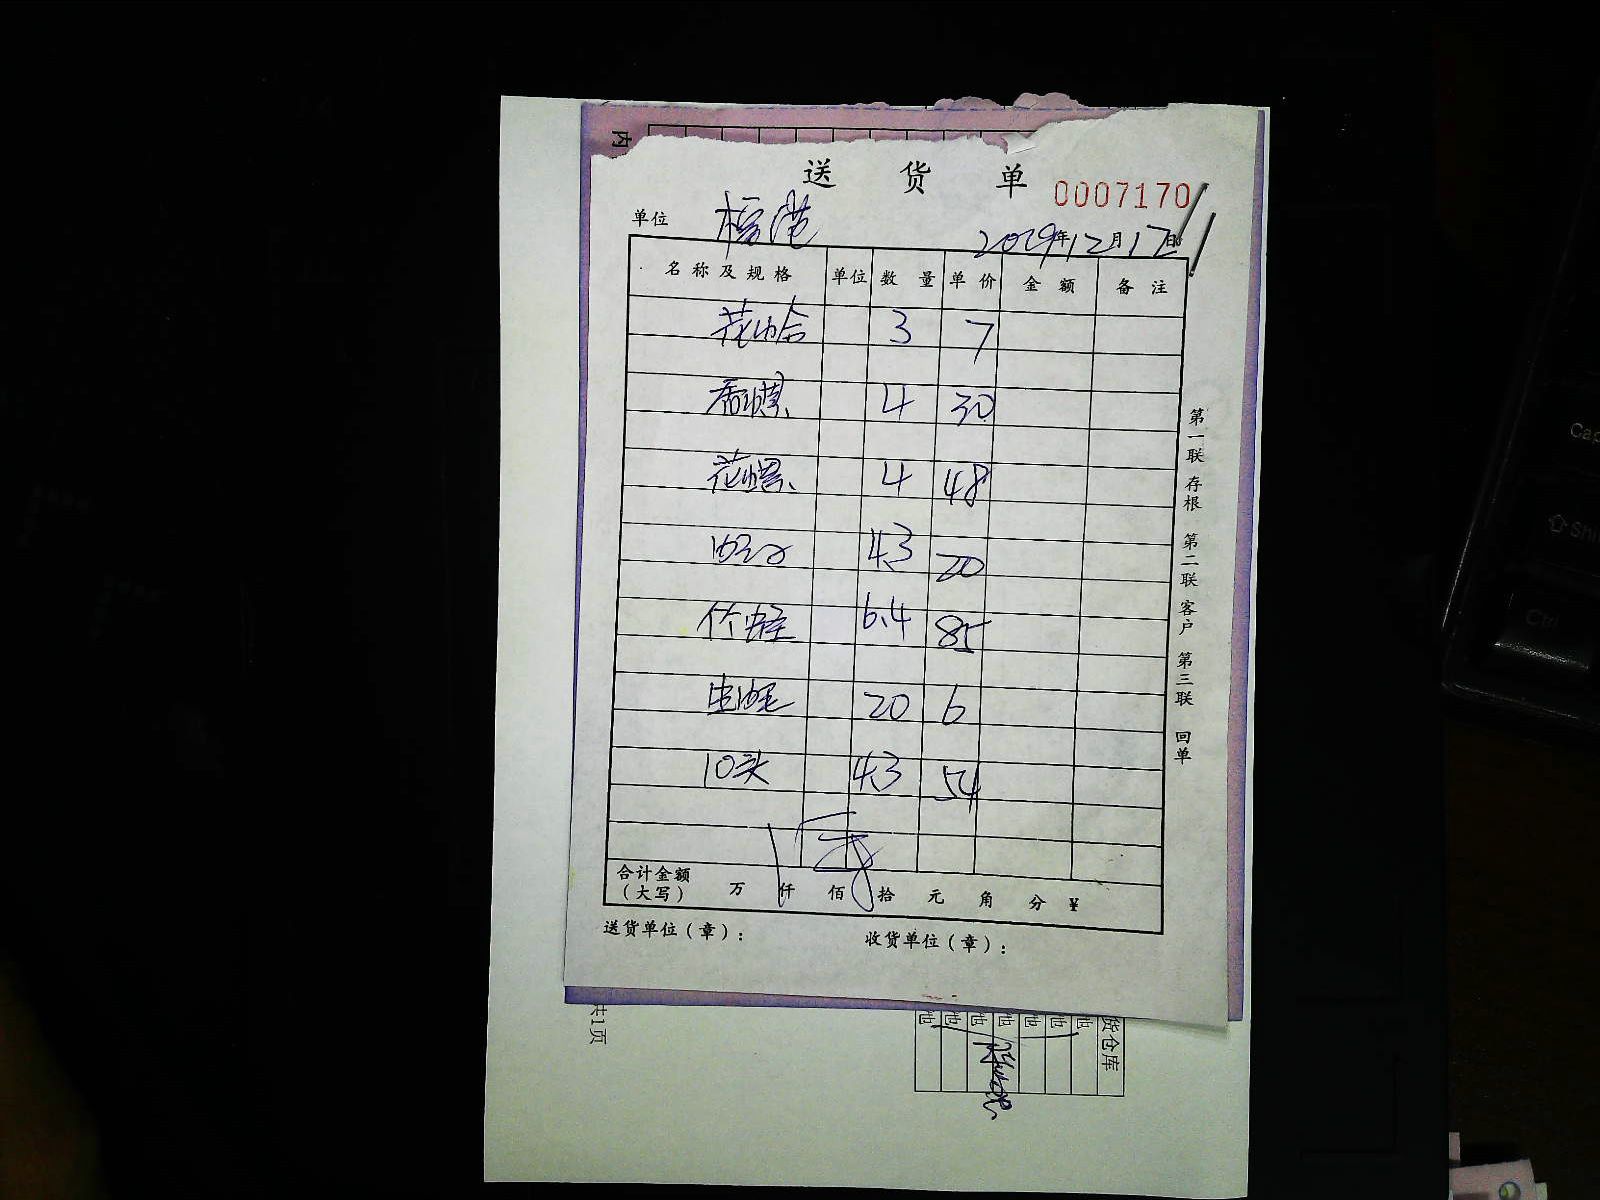 内
送 货 单
0007170
单位 楼港
2019年12月17日
名称及规格 单位 数量 单价 金额 备注
花蛤 3 7
香螺 4 30
花螺 4 48
4.3 20
竹蛏 6.4 85
生蚝 20 6
10头 4.3 54
合计金额（大写） 万 仟 佰 拾 元 角 分 ¥
送货单位（章）： 收货单位（章）：
第一联 存根 第二联 客户 第三联 回单
共1页
货仓库
Cap
Shi
Ctrl